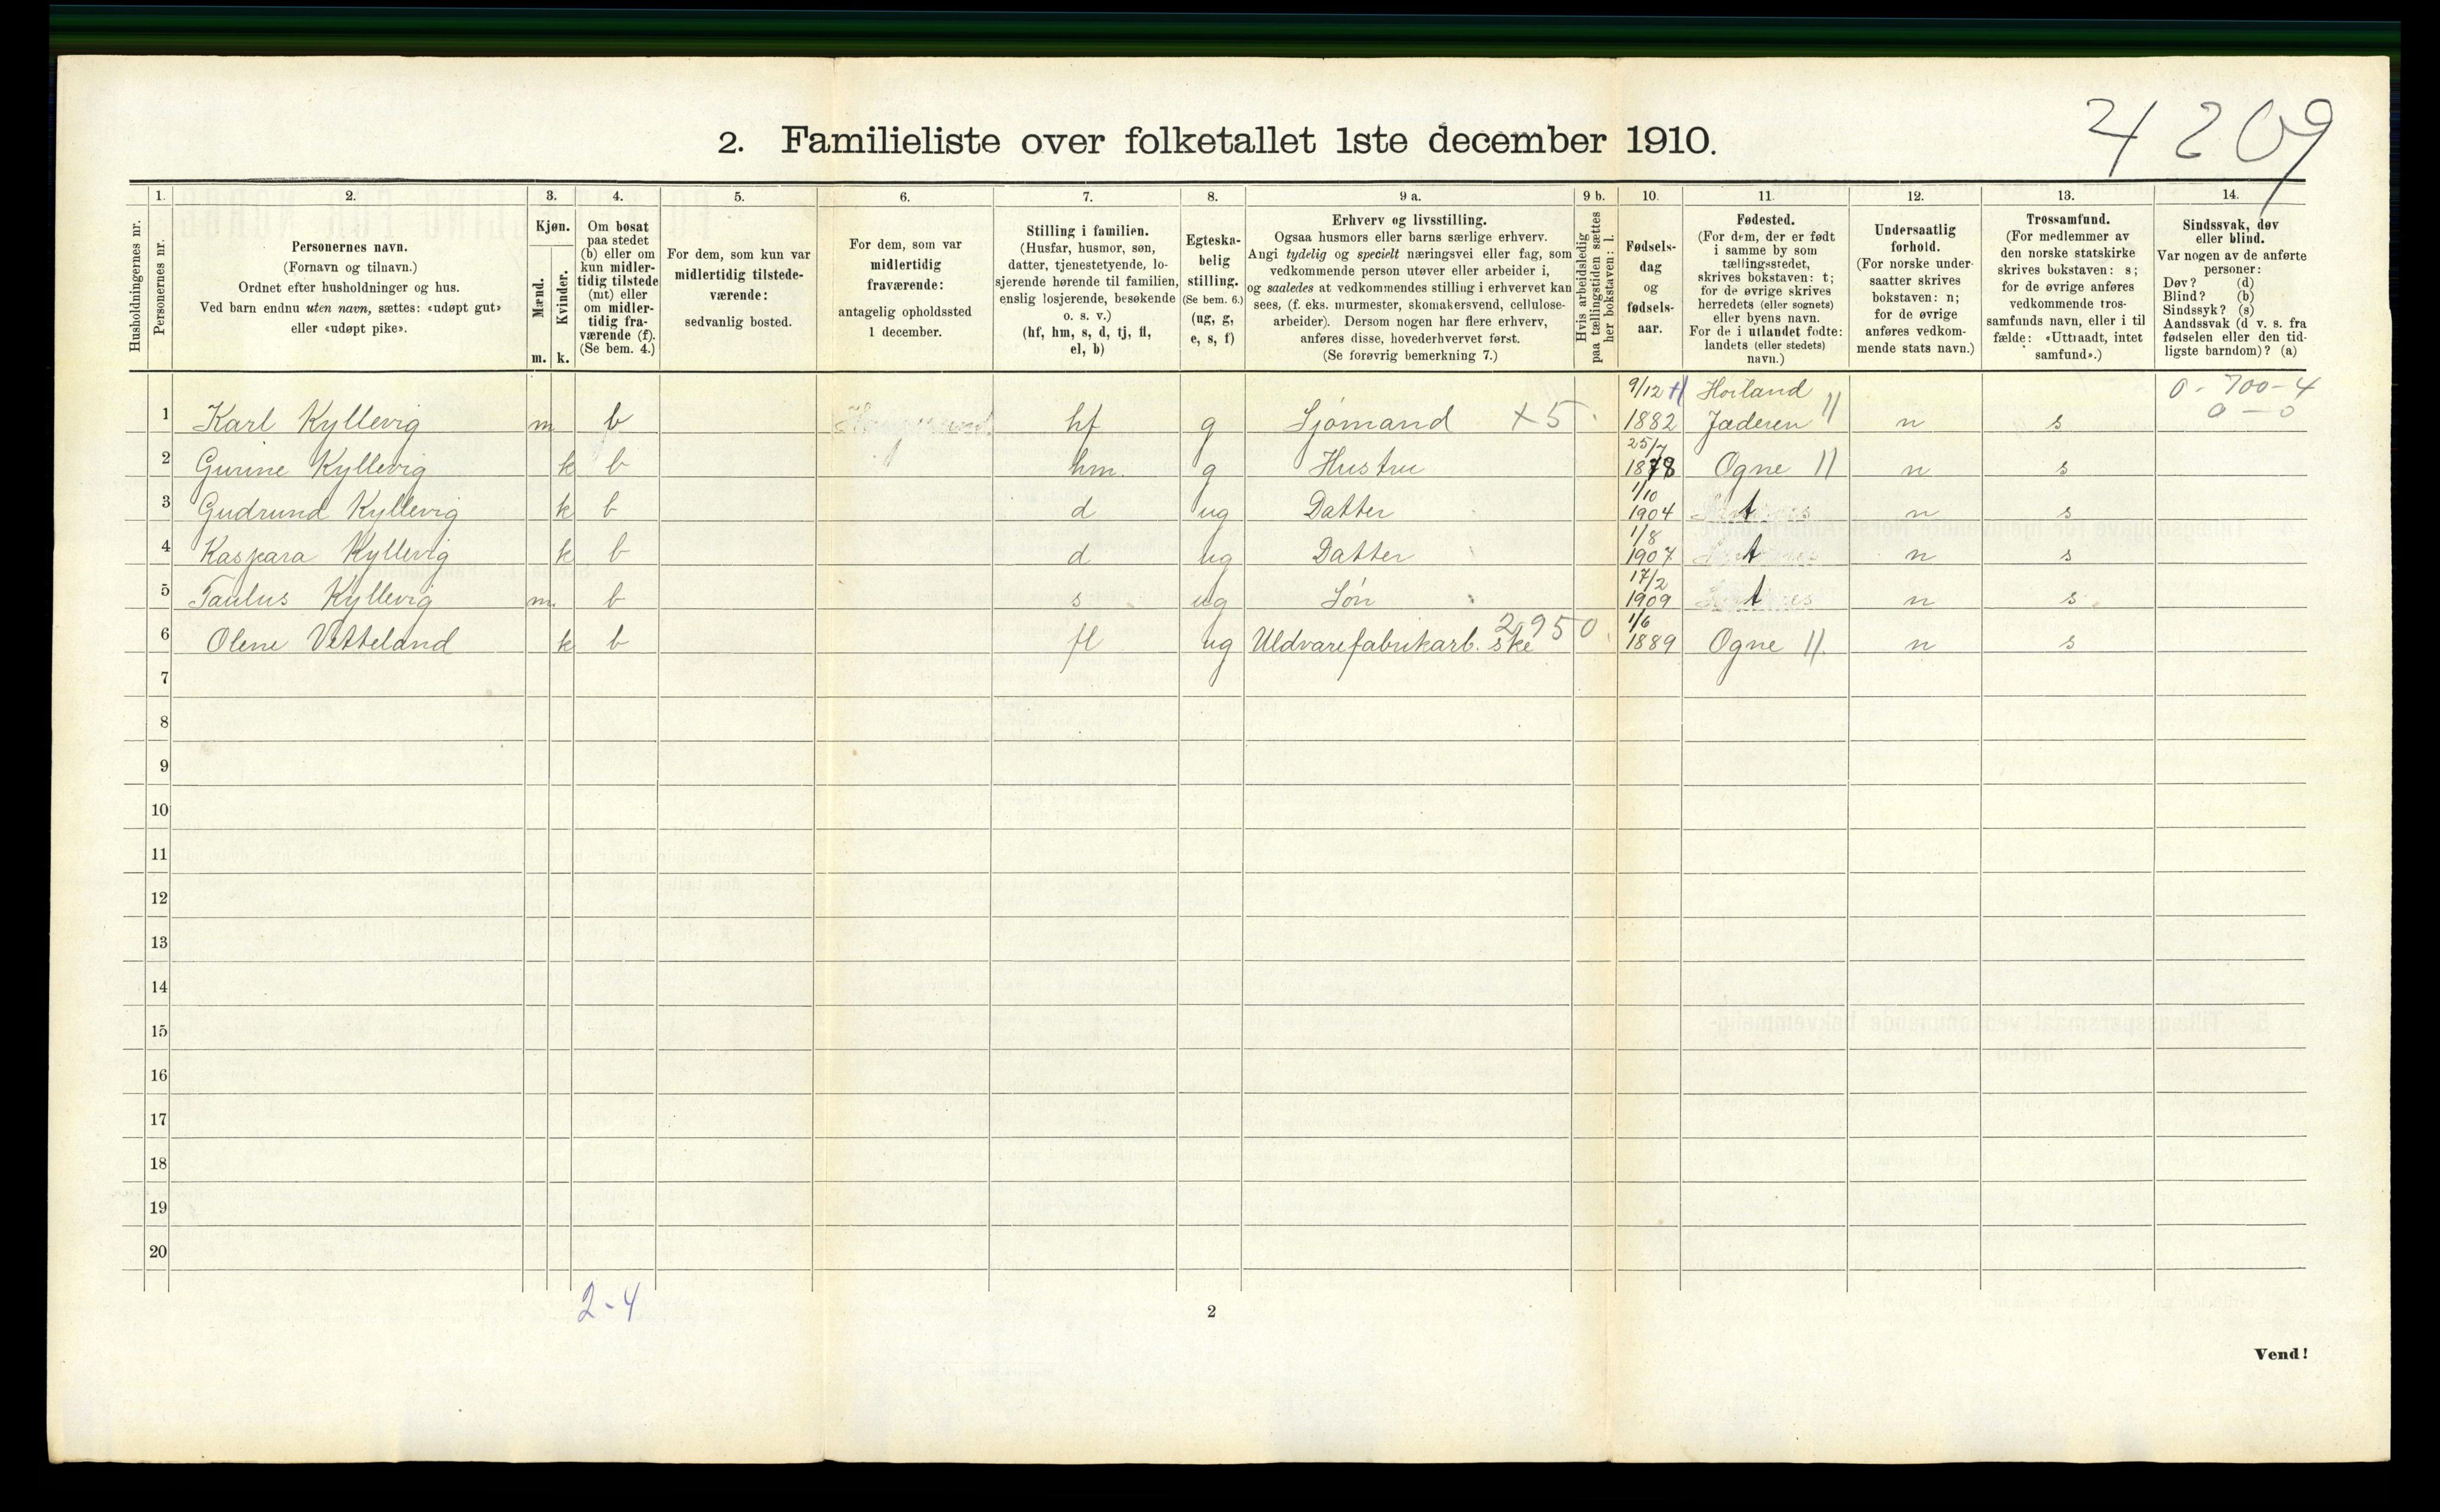 4209
2. Familieliste over folketallet 1ste december 1910.
Husholdningernes nr.
1.
Personernes nr.
2.
Personernes navn.
(Fornavn og tilnavn.)
Ordnet efter husholdninger og hus.
Ved barn endnu uten navn, sættes: «udøpt gut»
eller «udøpt pike».
3.
Kjøn.
Mænd.
m.
Kvinder.
k.
4.
Om bosat
paa stedet
(b) eller om
kun midler-
tidig tilstede
(mt) eller
om midler-
tidig fra-
værende (f).
(Se bem. 4.)
5.
For dem, som kun var
midlertidig tilstede-
værende:
sedvanlig bosted.
6.
For dem, som var
midlertidig
fraværende:
antagelig opholdssted
1 december.
7.
Stilling i familien.
(Husfar, husmor, søn,
datter, tjenestetyende, lo-
sjerende hørende til familien,
enslig losjerende, besøkende
o. s. v.)
(hf, hm, s, d, tj, fl,
el, b)
8.
Egteska-
belig
stilling.
(Se bem. 6.)
(ug, g,
e, s, f)
9 a.
Erhverv og livsstilling.
Ogsaa husmors eller barns særlige erhverv.
Angi tydelig og specielt næringsvei eller fag, som
vedkommende person utøver eller arbeider i,
og saaledes at vedkommendes stilling i erhvervet kan
sees, (f. eks. murmester, skomakersvend, cellulose-
arbeider). Dersom nogen har flere erhverv,
anføres disse, hovederhvervet først.
(Se forøvrig bemerkning 7.)
9 b.
Hvis arbeidsledig
paa tællingstiden sættes
her bokstaven: l.
10.
Fødsels-
dag
og
fødsels-
aar.
11.
Fødested.
(For dem, der er født
i samme by som
tællingsstedet,
skrives bokstaven: t;
for de øvrige skrives
herredets (eller sognets)
eller byens navn.
For de i utlandet fødte:
landets (eller stedets)
navn.)
12.
Undersaatlig
forhold.
(For norske under-
saatter skrives
bokstaven: n;
for de øvrige
anføres vedkom-
mende stats navn.)
13.
Trossamfund.
(For medlemmer av
den norske statskirke
skrives bokstaven: s;
for de øvrige anføres
vedkommende tros-
samfunds navn, eller i til
fælde: «Uttraadt, intet
samfund».)
14.
Sindssvak, døv
eller blind.
Var nogen av de anførte
personer:
Døv? (d)
Blind? (b)
Sindssyk? (s)
Aandssvak (d v. s. fra
fødselen eller den tid-
ligste barndom)? (a)
9/12 Hoiland 0-700-4
1 Karl Kyllevig m b hf g Sjömand +5 1882 Jæderen n s 0-0
25/7
2 Gurine Kyllevig k b hm. g Hustru 1878 Ogne n s
1/10
3 Gudrund Kyllevig k b d ug Datter 1904 t n s
1/8
4 Kaspara Kyllevig k b d ug Datter 1907 t n s
17/2
5 Paulus Kyllevig m. b s ug Sön 1909 t n s
2950 1/6
6 Olene Vetteland k b fl ug Uldvarefabrikarb. ske 1889 Ogne n s
7
8
9
10
11
12
13
14
15
16
17
18
19
20
2-4
2
Vend!